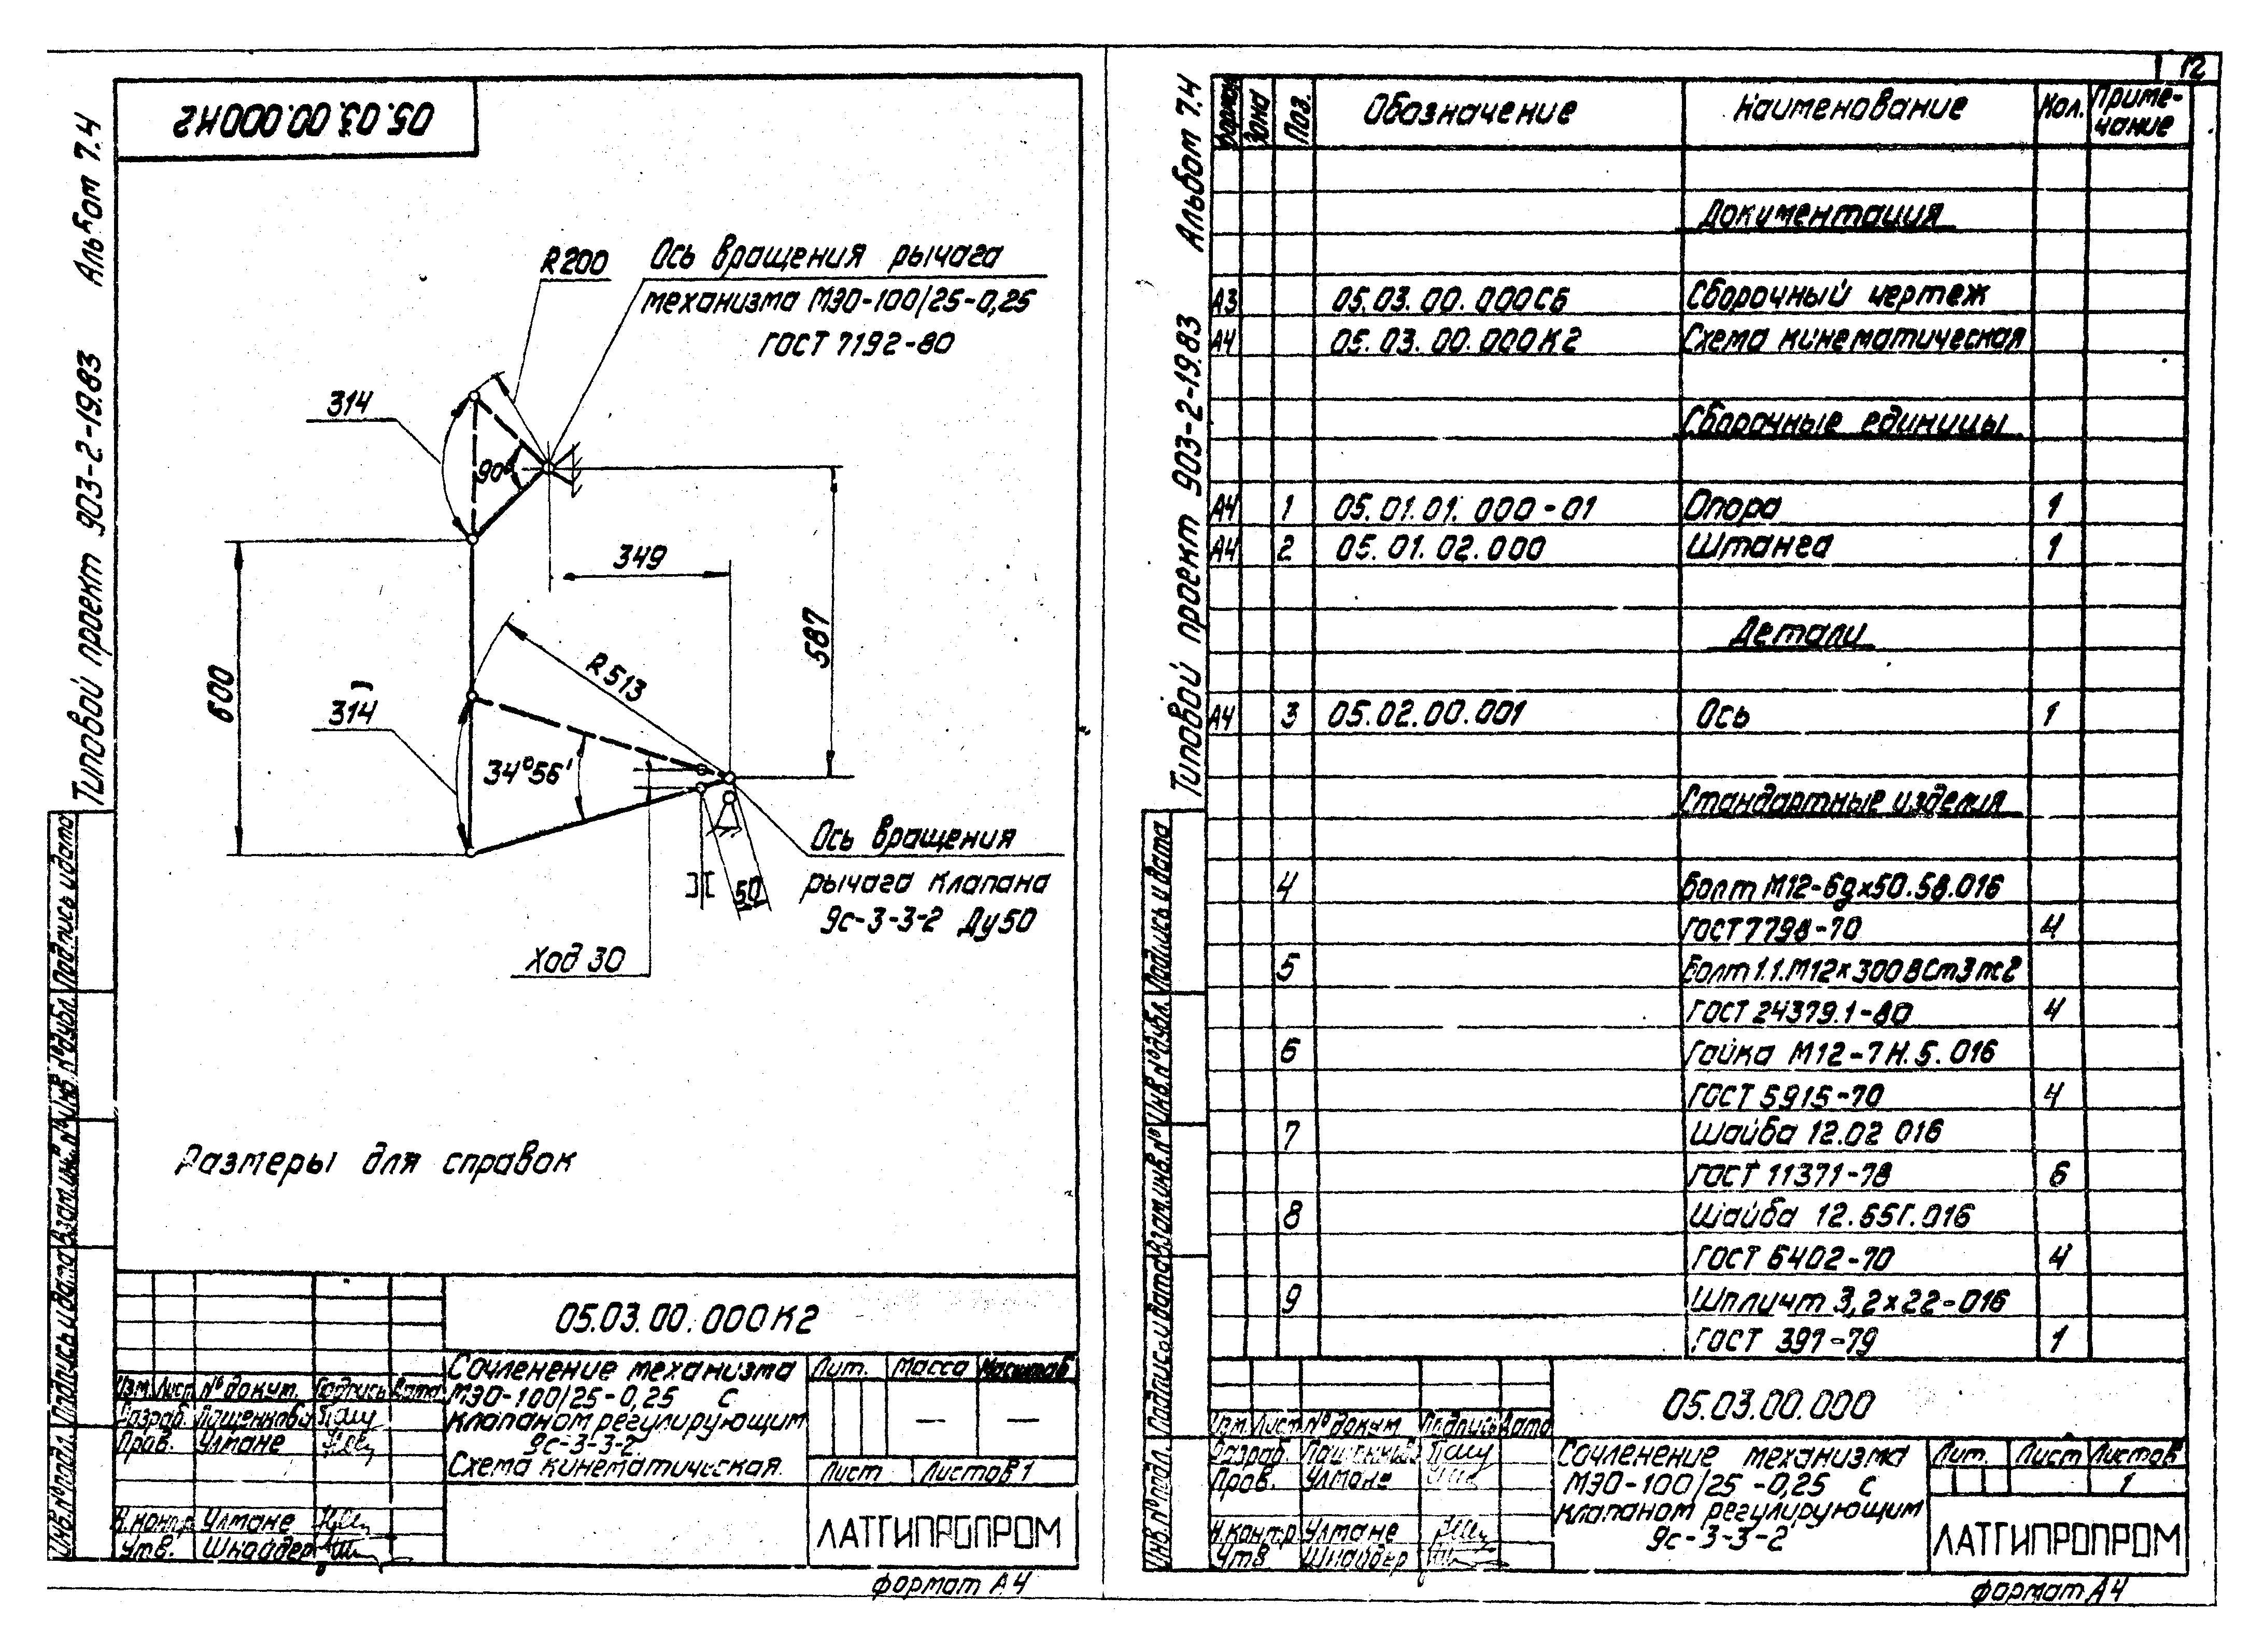 12
05.03.00.000К2
Альбом 7.4
Типовой проект 903-2-19.83
R200
Ось вращения рычага
механизма МЭО-100/25-0,25
ГОСТ 7192-80
314
90°
349
600
587
R513
314
34°56'
50
Ось вращения
рычага клапана
9с-3-3-2 Ду50
Ход 30
Размеры для справок
Инв.№подл. Подпись и дата Взам.инв.№ Инв.№дубл. Подпись и дата
05.03.00.000К2
Сочленение механизма
МЭО-100/25-0,25 с
клапаном регулирующим
9с-3-3-2.
Схема кинематическая.
Лит. Масса Масштаб
— —
Лист Листов 1
Изм. Лист № докум. Подпись Дата
Разраб. Пащенкова
Пров. Улмане
Н.контр Улмане
Утв. Шнайдер
ЛАТГИПРОПРОМ
формат А4
Альбом 7.4
Типовой проект 903-2-19.83
Формат Зона Поз. Обозначение Наименование Кол. Примечание
Документация
А3 05.03.00.000СБ Сборочный чертеж
А4 05.03.00.000К2 Схема кинематическая
Сборочные единицы
А4 1 05.01.01.000-01 Опора 1
А4 2 05.01.02.000 Штанга 1
Детали
А4 3 05.02.00.001 Ось 1
Стандартные изделия
4 Болт М12-6gх50.58.016
ГОСТ 7798-70 4
5 Болт 1.1.М12х300 ВСт3пс2
ГОСТ 24379.1-80 4
6 Гайка М12-7Н.5.016
ГОСТ 5915-70 4
7 Шайба 12.02 016
ГОСТ 11371-78 6
8 Шайба 12.65Г.016
ГОСТ 6402-70 4
9 Шплинт 3,2х22-016
ГОСТ 397-79 1
Инв.№подл. Подпись и дата Взам.инв.№ Инв.№дубл. Подпись и дата
05.03.00.000
Изм. Лист № докум. Подпись Дата
Разраб. Пащенкова
Пров. Улмане
Н.контр Улмане
Утв. Шнайдер
Сочленение механизма
МЭО-100/25-0,25 с
клапаном регулирующим
9с-3-3-2
Лит. Лист Листов
1
ЛАТГИПРОПРОМ
формат А4